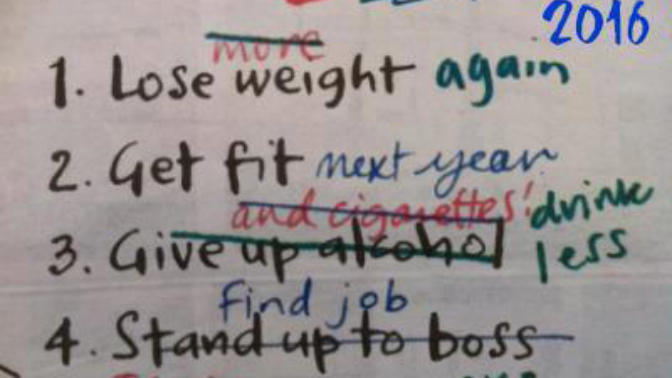 2016
more
1. Lose weight again
2. Get fit next year
and cigarettes! drink
3. Give up alcohol less
find job
4. Stand up to boss